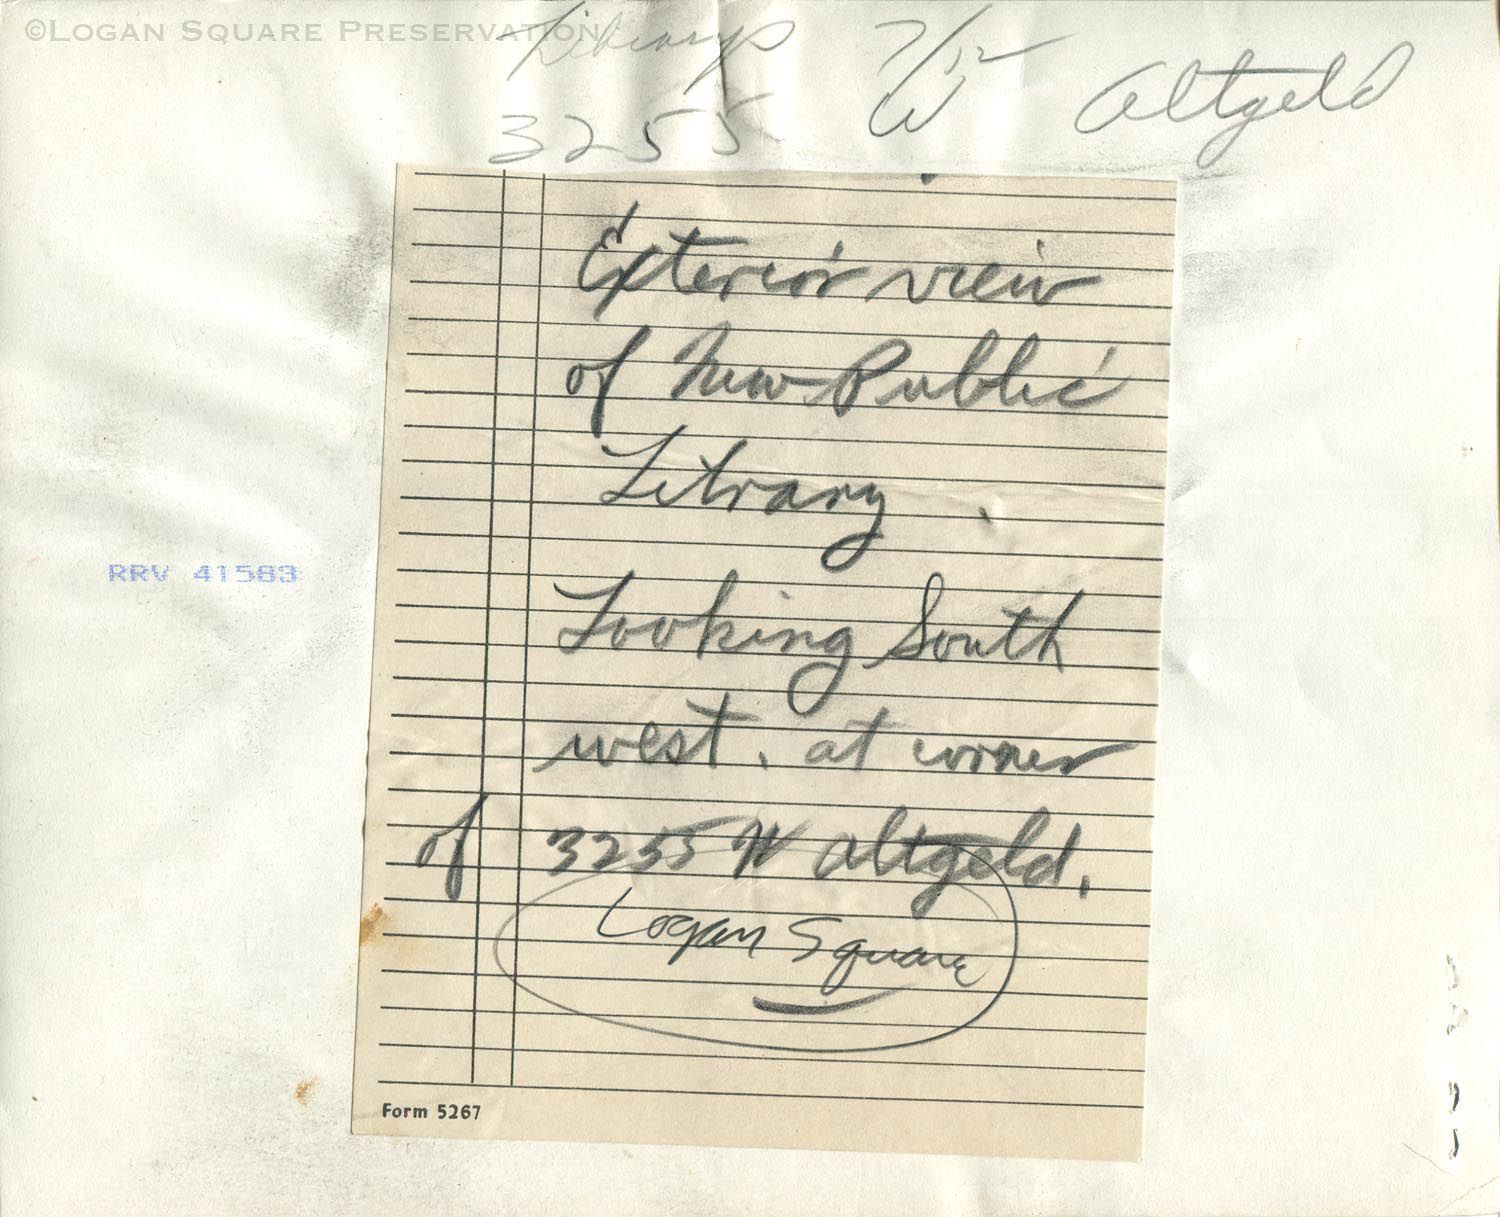 ©Logan Square Preservation
Library 7/12
3255 W Altgeld
Exterior view
of New Public
Library.
Looking South
west. at corner
of 3255 W Altgeld.
Logan Square
RRV 41583
Form 5267